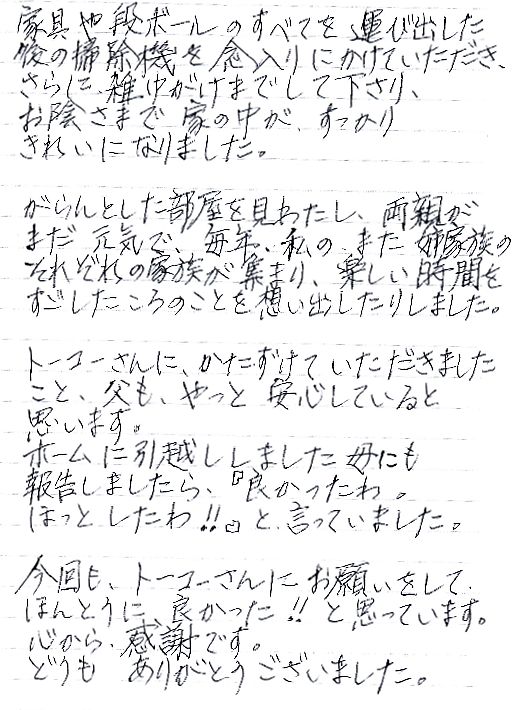 家具や段ボールのすべてを運び出した
後の掃除機を念入りにかけていただき、
さらに、雑巾がけまでして下さり、
お陰さまで家の中が、すっかり
きれいになりました。
がらんとした部屋を見わたし、両親が
まだ元気で、毎年、私の、また姉家族の
それぞれの家族が集まり、楽しい時間を
すごしたころのことを想い出したりしました。
トーコーさんに、かたずけていただきました
こと、父も、やっと安心していると
思います。
ホームに引越ししました母にも
報告しましたら、『良かったわ。
ほっとしたわ!!』と、言っていました。
今回も、トーコーさんにお願いをして、
ほんとうに、良かった!!と思っています。
心から、感謝です。
どうもありがとうございました。